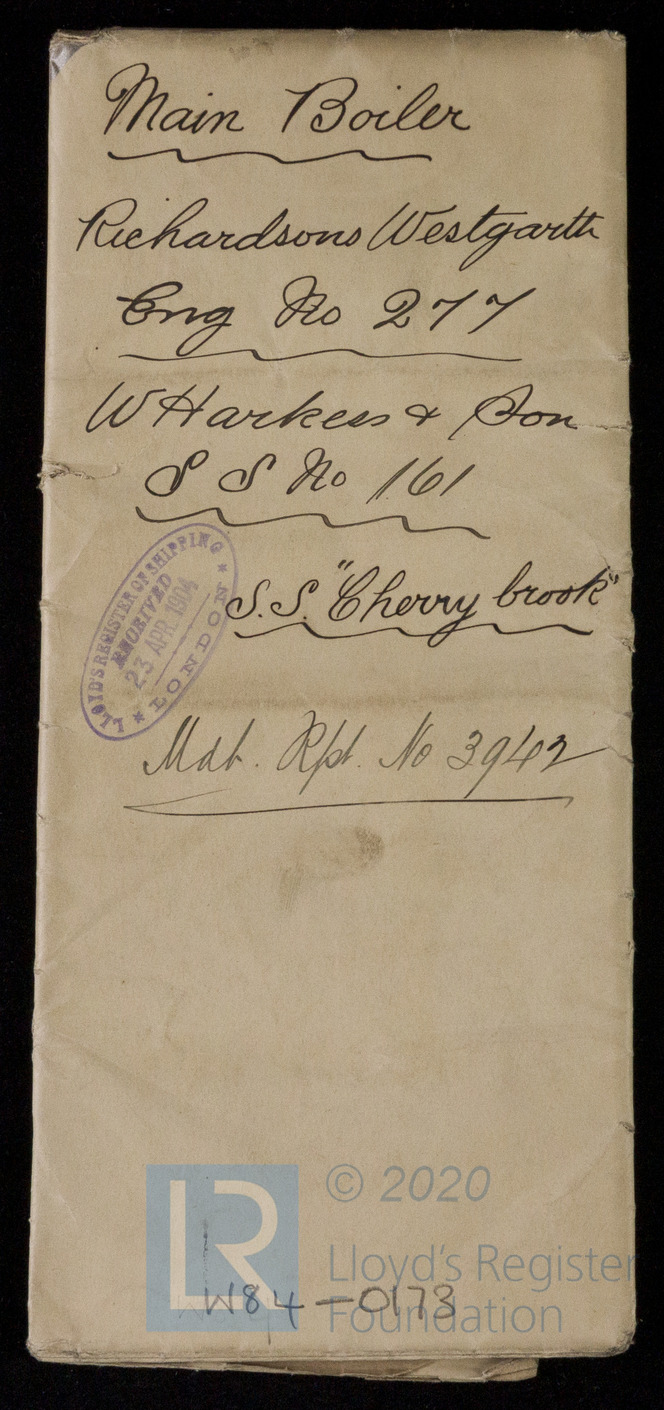 Main Boiler
Richardsons Westgarth
Eng No 277
W Harkess & Son
S S No 161
LLOYD'S REGISTER OF SHIPPING
RECEIVED
23 APR. 1904
LONDON
S.S. "Cherry brook"
Mdb. Rpt. No 3942
LR
© 2020
Lloyd's Register
Foundation
W84-0173